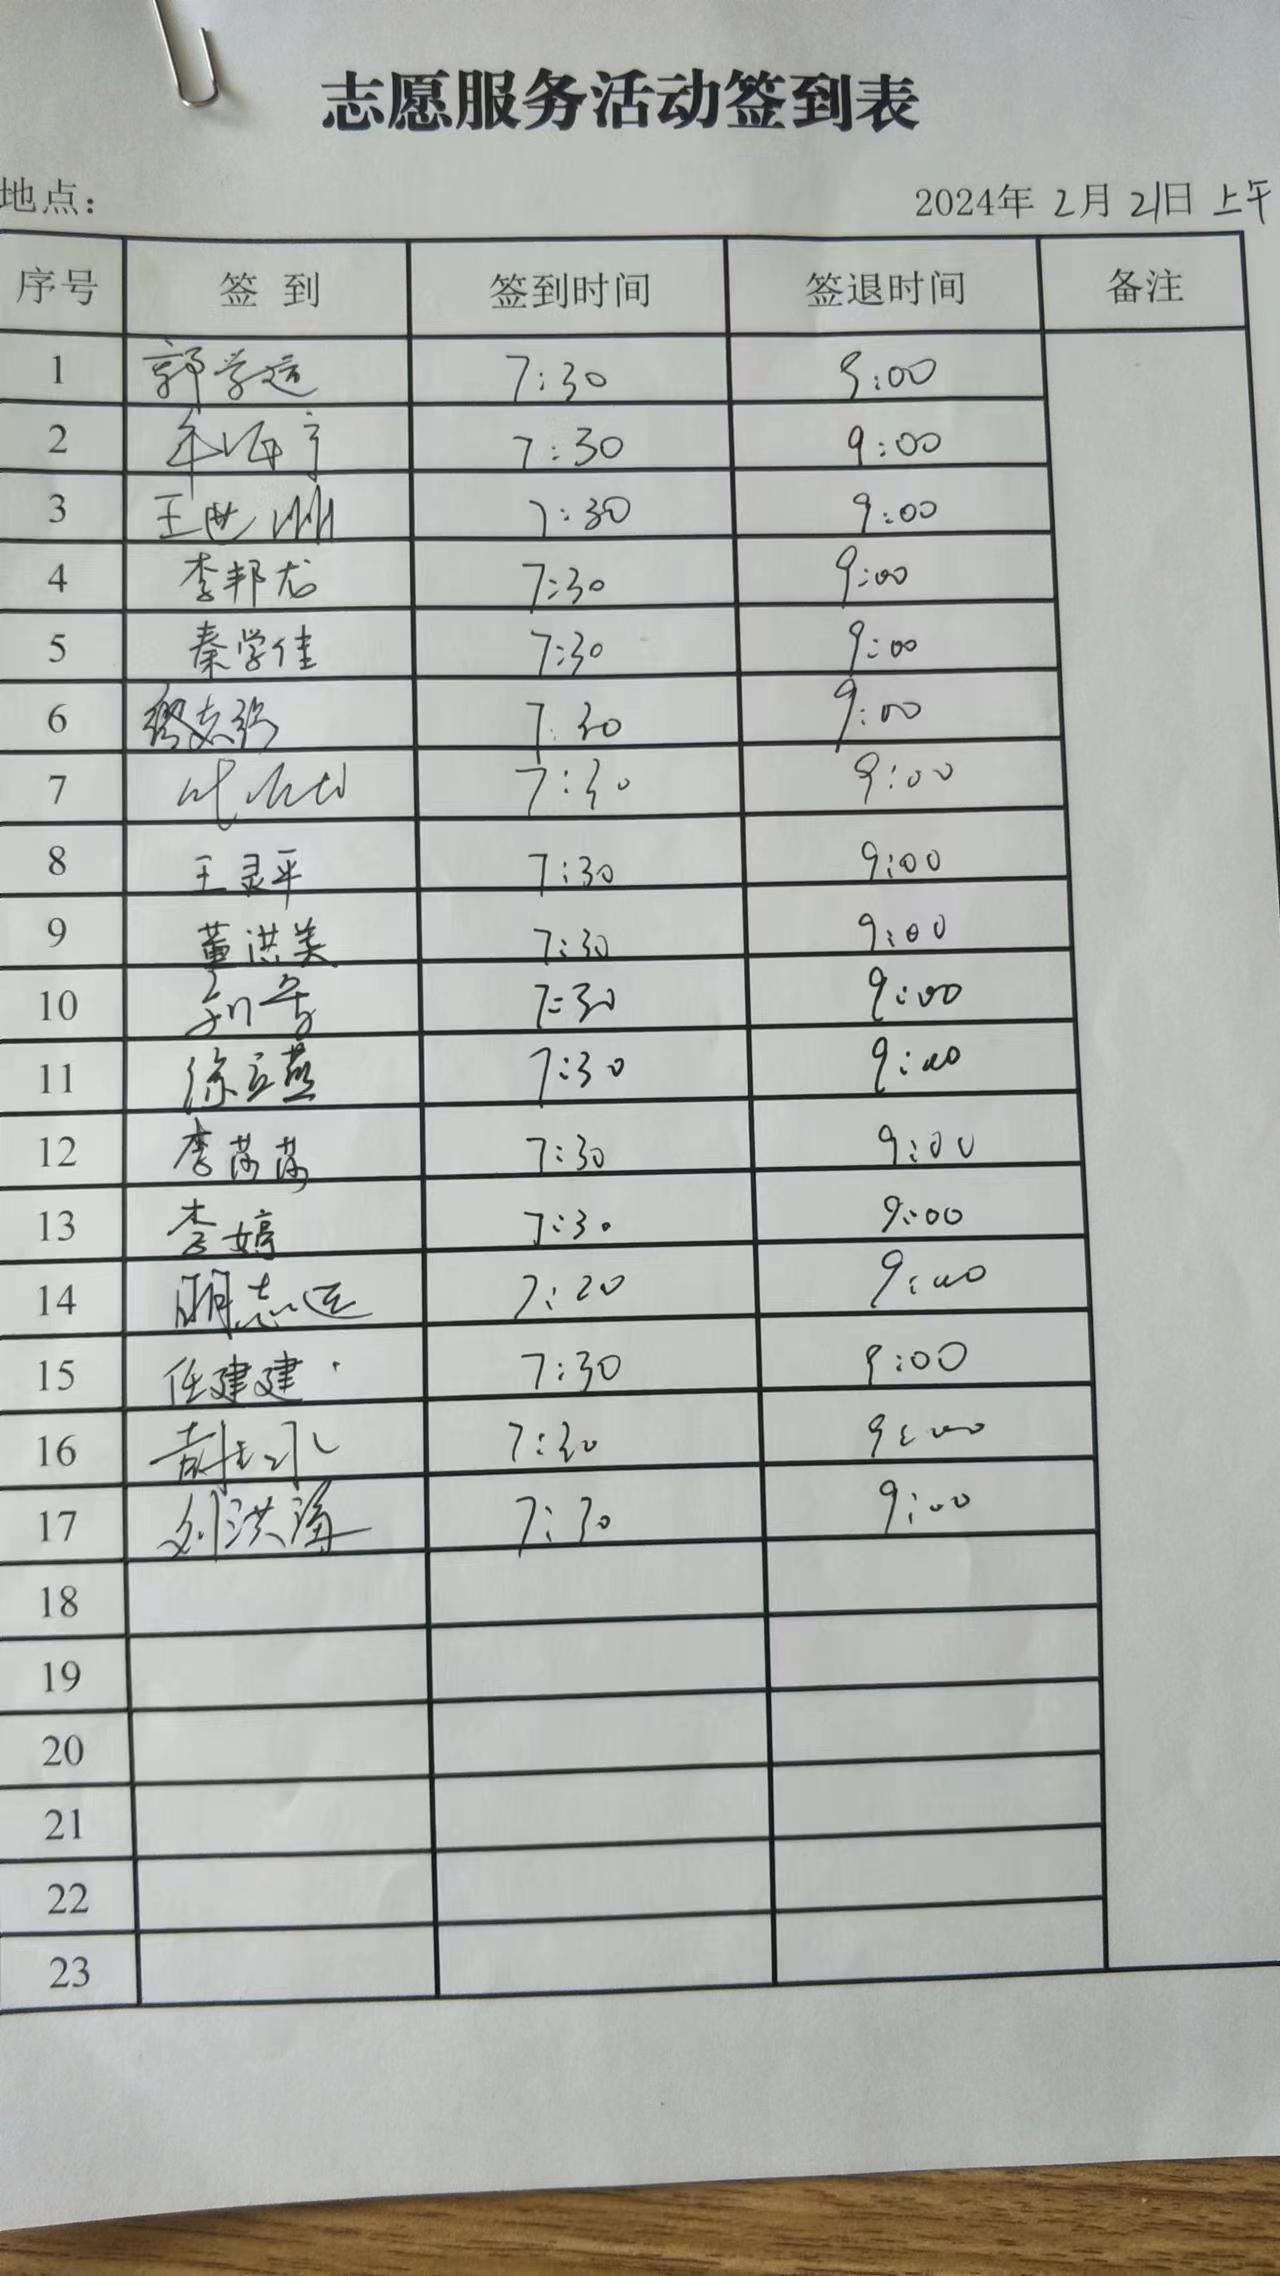 志愿服务活动签到表
地点：
2024年 2月 21日 上午
序号 签 到 签到时间 签退时间 备注
1 郭学运 7:30 9:00
2 7:30 9:00
3 王世洲 7:30 9:00
4 李邦龙 7:30 9:00
5 秦学佳 7:30 9:00
6 7:30 9:00
7 7:30 9:00
8 王灵平 7:30 9:00
9 董洪美 7:30 9:00
10 7:30 9:00
11 徐立燕 7:30 9:00
12 李 7:30 9:00
13 李婷 7:30 9:00
14 明志运 7:20 9:00
15 任建建 7:30 9:00
16 7:30 9:00
17 刘洪海 7:30 9:00
18
19
20
21
22
23